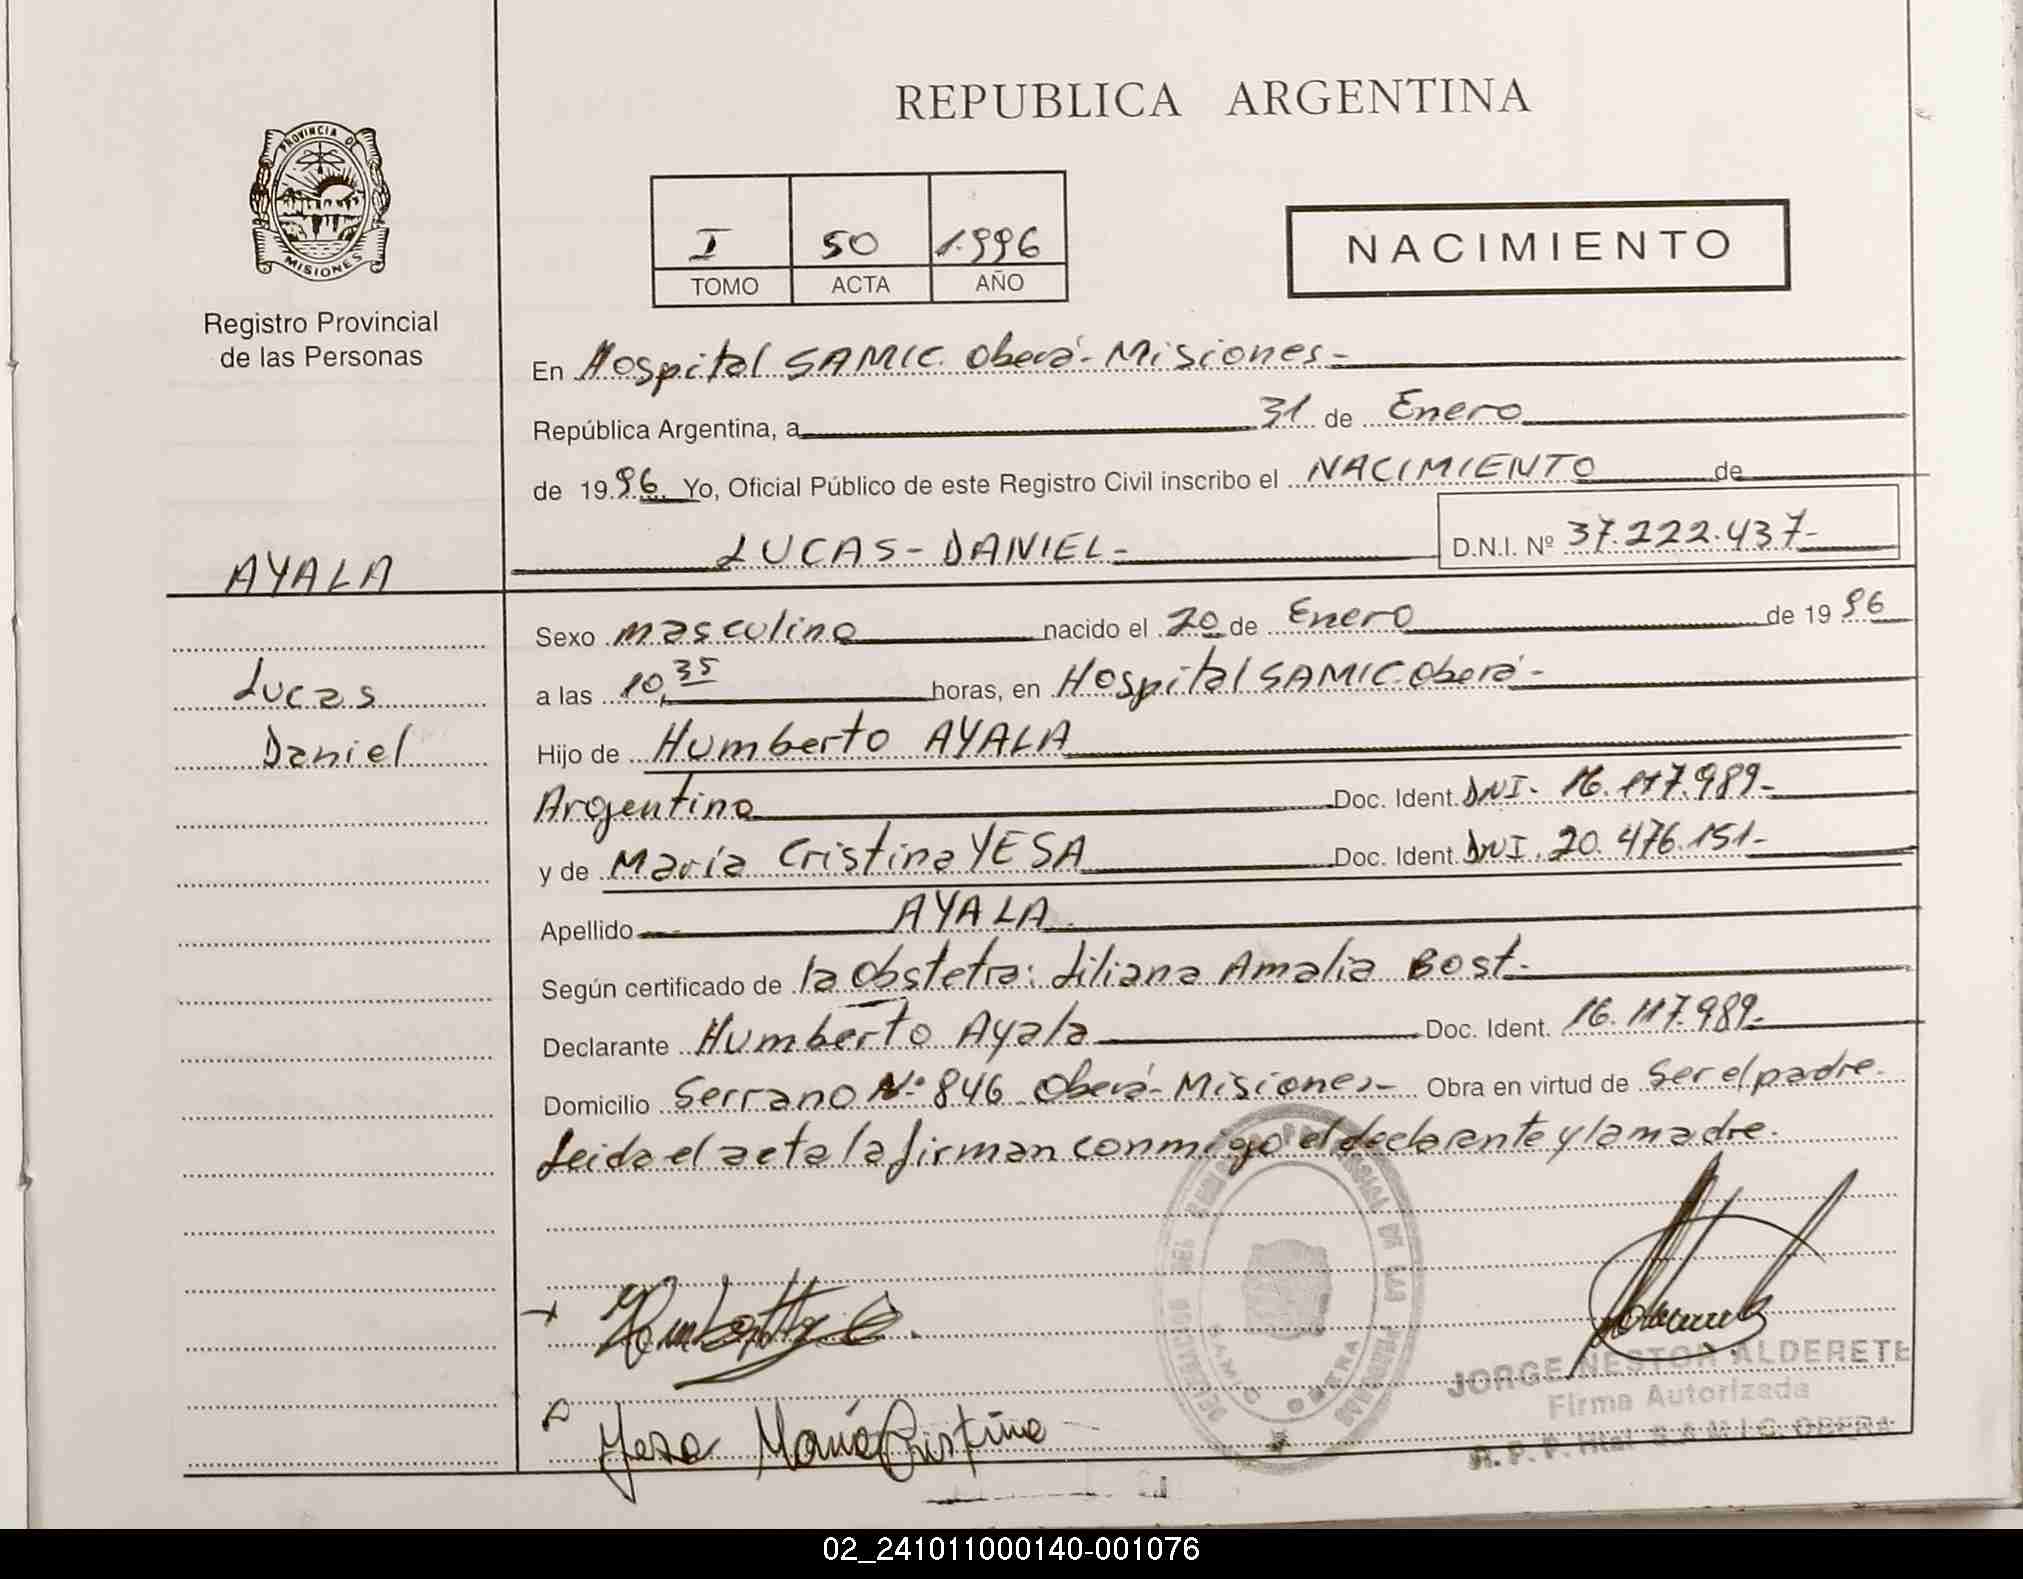 REPUBLICA ARGENTINA
PROVINCIA DE
MISIONES
Registro Provincial
de las Personas
I 50 1.996
TOMO ACTA AÑO
NACIMIENTO
En Hospital SAMIC. Oberá - Misiones -
República Argentina, a 31 de Enero
de 1996. Yo, Oficial Público de este Registro Civil inscribo el NACIMIENTO de
LUCAS - DANIEL - D.N.I. Nº 37.222.437-
AYALA
Lucas
Daniel
Sexo masculino nacido el 20 de Enero de 1996
a las 10,35 horas, en Hospital SAMIC. Oberá -
Hijo de Humberto AYALA
Argentino Doc. Ident. DNI. 16.117.989-
y de María Cristina YESA Doc. Ident. DNI. 20.476.151-
Apellido AYALA.
Según certificado de la Obstetra: Liliana Amalia Bost.
Declarante Humberto Ayala Doc. Ident. 16.117.989-
Domicilio Serrano Nº 846 Oberá - Misiones - Obra en virtud de Ser el padre.
Leida el acta la firman conmigo el declarante y la madre.
Yesa María Cristina
OBERA
JORGE NESTOR ALDERETE
Firma Autorizada
R. P. P. Htal S.A.M.I.C. OBERA
02_241011000140-001076